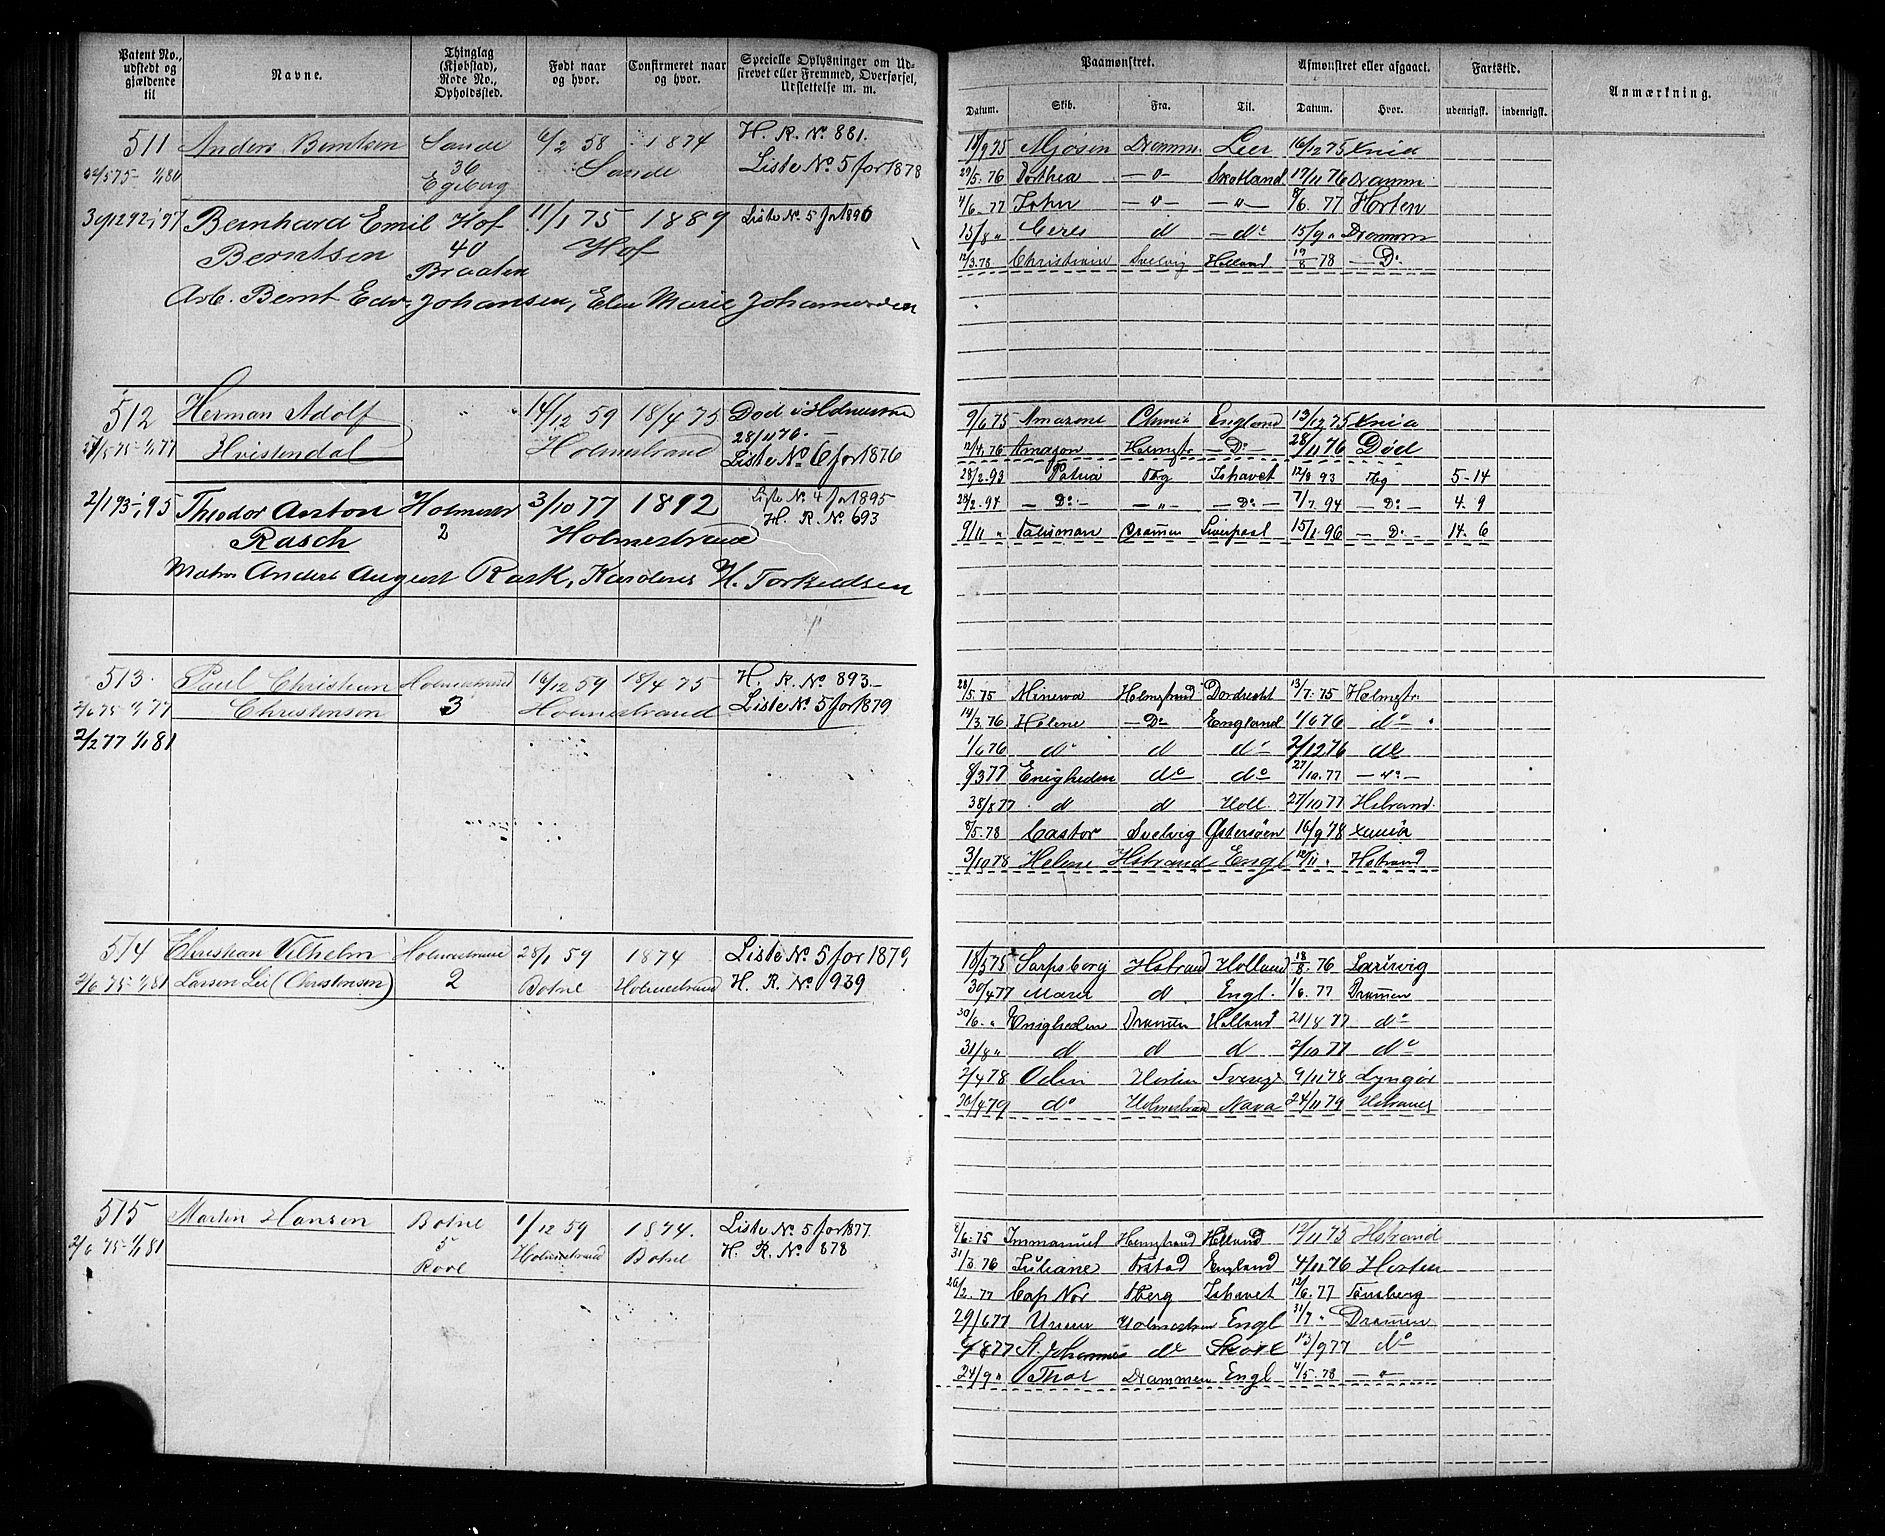 Patent No., udstedt og gjældende til | Navne. | Thinglag (Kjøbstad), Rode No., Opholdssted. | Født naar og hvor. | Confirmeret naar og hvor. | Specielle Oplysninger om Udskrevet eller Fremmed, Overførsel, Udslettelse m. m.
511 Anders Berntsen Sande 6/2 58 1874 H. R. No 881.
36 Sande Liste No 5 for 1878
Egeberg
Bernhard Emil Hof 11/1 75 1889 Liste No 5 for 1896
Berntsen 40 Hof
Braaten
Arb. Bernt Edv. Johansen, Elen Marie Johannesden
512 Herman Adolf 14/12 59 18/4 75 Død i Holmestra
Hvistendal Holmestrand 28/11 76.
Liste No 6 for 1876
2/1 93 - 95 Theodor Anton Holmestr 3/10 77 1892 Liste No 4 for 1895
Rasch 2 Holmestrand H. R. No 693
Matros Anders August Rask, H. Torkildsen
513 Paul Christian Holmestrand 16/12 59 18/4 75 H. R. No 893
2/6 75 - 1/1 77 Christensen 3 Holmestrand Liste No 5 for 1879
2/2 77 1/1 81
514 Christian Vilhelm Holmestrand 28/1 59 1874 Liste No 5 for 1879
2/6 75 - 1/1 81 Larsen Lie (Christensen) 2 Botne Holmestrand H. R. No 939
515 Martin Hansen Botne 1/12 59 1874. Liste No 5 for 1877.
2/6 75 - 1/1 81 5 Holmestrand Botne H. R. No 878
Rove
Paamønstret. | Afmønstret eller afgaaet. | Fartstid. | Anmærkning.
Datum. | Skib. | Fra. | Til. | Datum. | Hvor. | udenrigsk. | indenrigsk.
18/9 75 Mjøsen Dramm. Leer 16/12 75 Xnia
29/5. 76 Dorthea — " — Skotland 17/11 76 Dramm
4/6. 77 John — " — — " — 8/6. 77 Horten
13/8 " Ceres d — do 15/9 " Dramm
12/3. 78 Christiane Svelvig Holland 19/8 - 78 — Do
9/6 75 Amazone England 13/12 75 Xnia
12/4. 76 Amazon Holmstr — Do — 28/11 76 Død
28/2. 93 Patria Tbg Ishavet 12/8 93 Tbg 5-14
28/2. 94 — Do — — " — — Do — 7/7. 94 — Do — 4. 9
9/11 " Talisman Dramen Liverpool 15/1. 96 — Do — 14. 6
28/5. 75 Minerva Holmstrand Dordrecht 13/7. 75 Holmstr.
14/3. 76 Helene — Do England 1/6 76 do
1/6 76 do d do 2/12 76 do
8/3 77 Enigheden do do 27/10. 77 — do —
38/8 77 d d Holl. 27/10 77 Hstrand.
8/5. 78 Castor Svelvig Østersøen 16/9 78 Xania
3/10 78 Helene Hstrand Engl 12/11 " Hstrand
18/5 75 Sarpsborg Hstrand Holland 18/8. 76 Laurvig
30/4 77 d Engl. 1/6. 77 Dramen
30/6. " Enigheden Dramen Holland 21/8 77 do
31/8 " d d d 2/10 77 do
2/4 78 Odin Horten Sverige 9/11 78 Lyngør
30/4 79 do Holmestrand 24/11 79 Hstrand
8/6. 75 Immanuel Hemstrand Holland 12/11 75 Hstrand
31/3. 76 Juliane England 4/11 76 Horten
26/2. 77 Cap Nor Tberg Ishavet 12/6. 77 Tønsberg
29/6 77 Holmestran Engl 31/7 " Dramen
9/8 77 St. Johannes do Skotl 13/9 77 do
24/9 " Thor Drammen Engl 4/5. 78 — " —